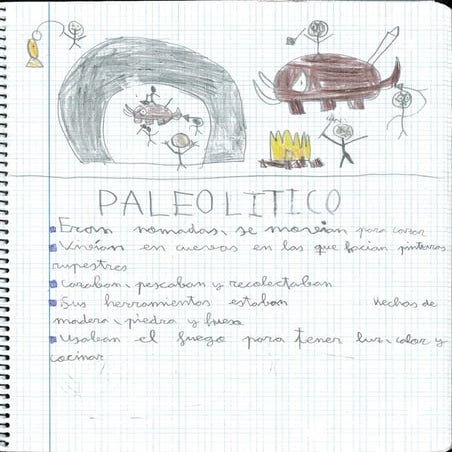 PALEOLITICO
Eran nomadas, se movian para cazar
Vivían en cuevas en las que hacian pinturas
rupestres
cazaban, pescaban y recolectaban
Sus herramientas estaban hechas de
madera, piedra y hueso
Usaban el fuego para tener luz, calor y
cocinar